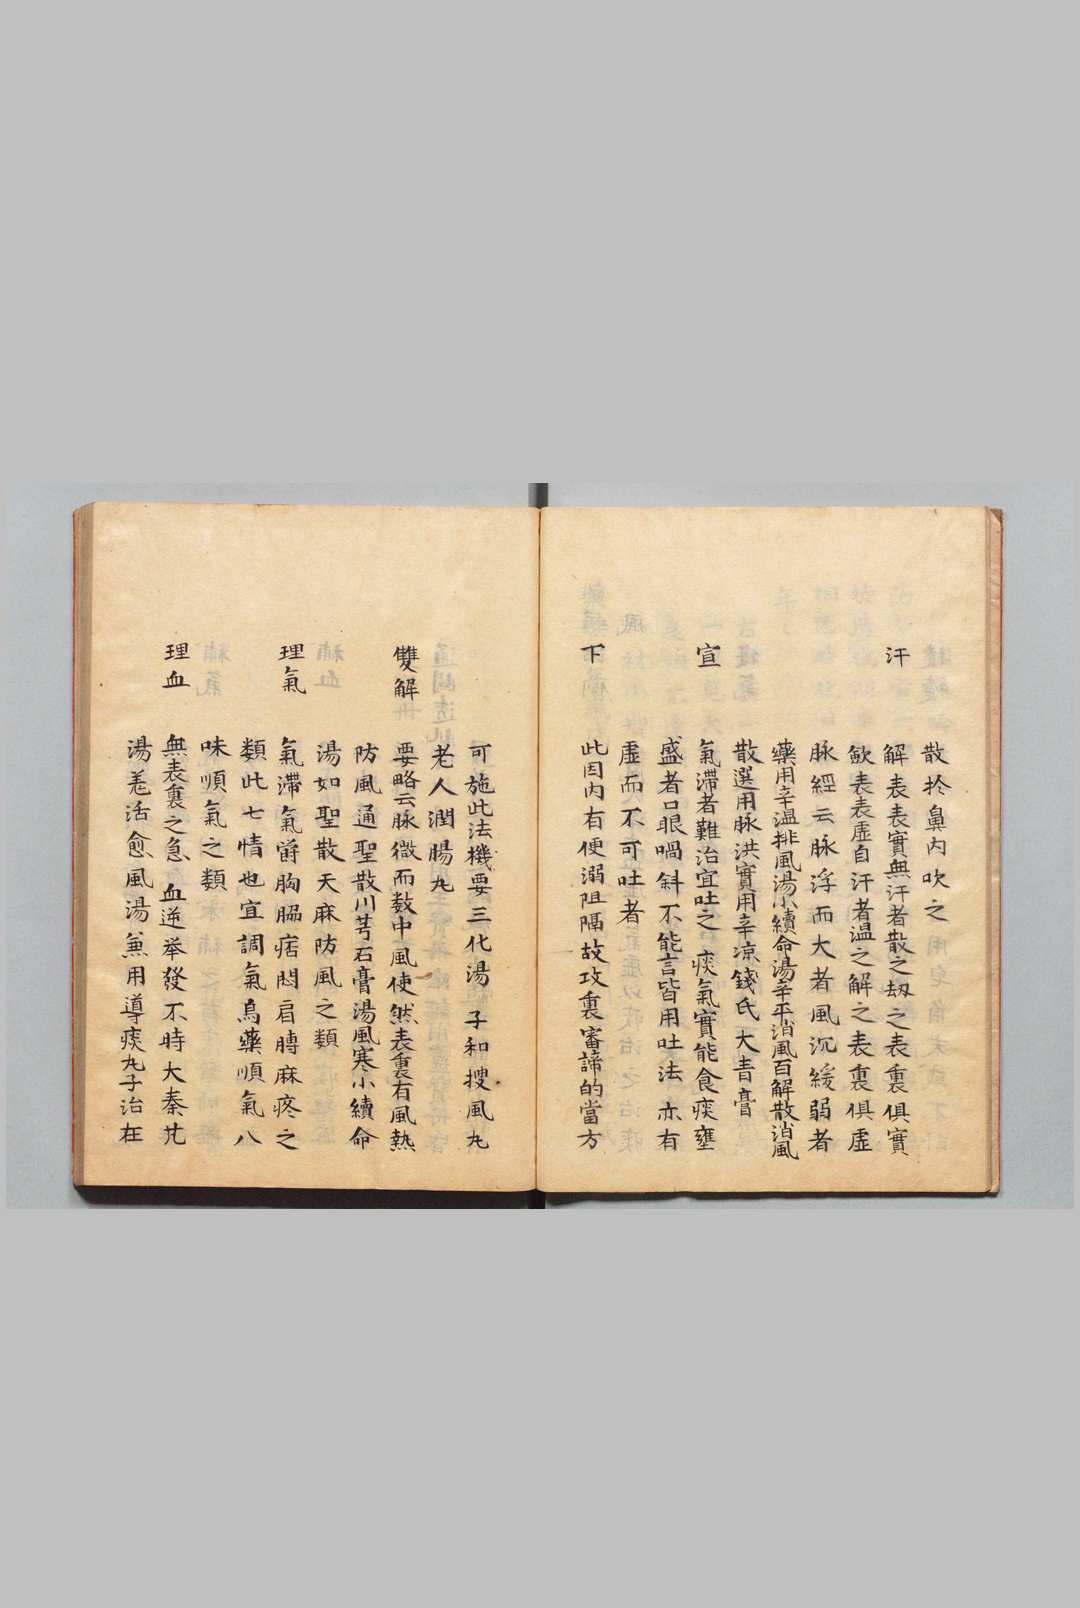 散於鼻內吹之
汗　解表表實無汗者散之刼之表裏俱實
歛表表虛自汗者温之解之表裏俱虛
脉經云脉浮而大者風沉緩弱者
藥用辛温排風湯小續命湯辛平消風百解散消風
散選用脉洪實用辛凉錢氏大青膏
宣　氣滯者難治宜吐之　痰氣實能食痰壅
盛者口眼喎斜不能言皆用吐法亦有
虛而不可吐者
下　此因內有便溺阻隔故攻裏審諦的當方
可施此法機要三化湯子和搜風丸
老人潤腸丸
雙解　要略云脉微而数中風使然表裏有風熱
防風通聖散川芎石膏湯風寒小續命
湯如聖散天麻防風之類
理氣　氣滯氣欝胸脇痞悶肩膊麻疼之
類此七情也宜調氣烏藥順氣八
味順氣之類
理血　無表裏之急　血逆举發不時大秦艽
湯羗活愈風湯兼用導痰丸子治在